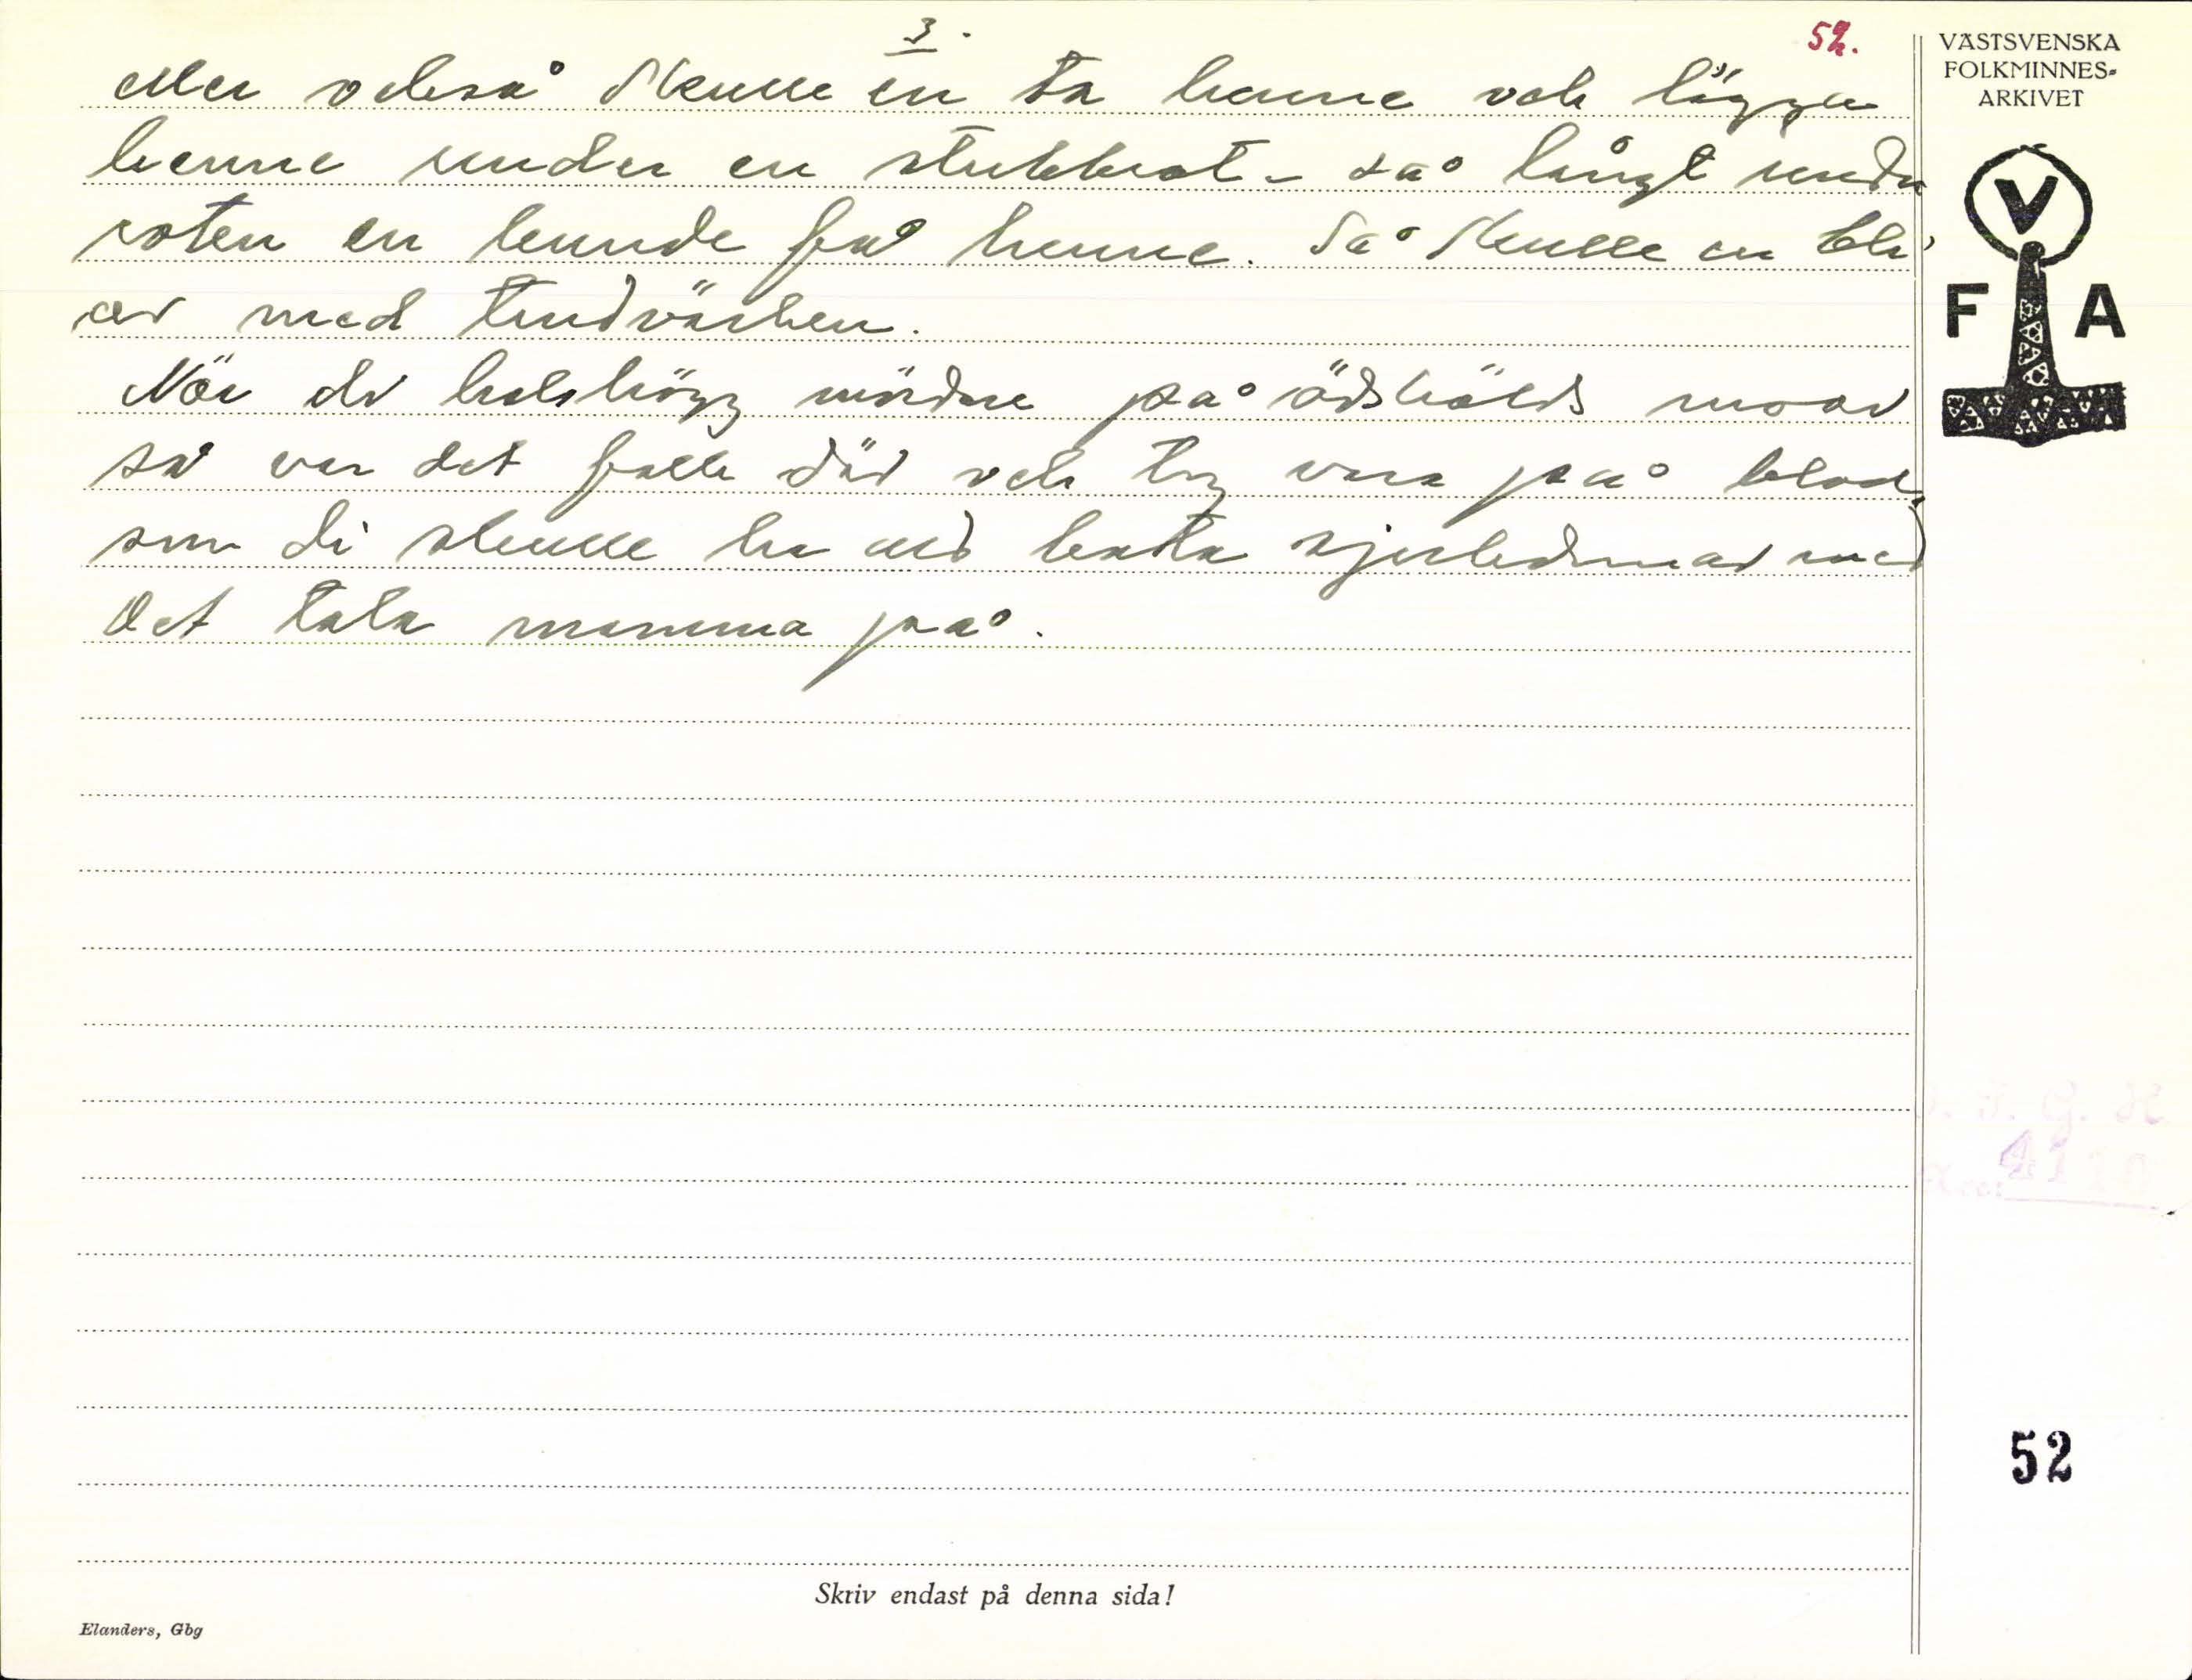 3.
52.
eller också skulle en ta henne och lägga
henne under en stubbrot - så långt under
roten en kunde få henne. Så skulle en bli
av med tandvärken.
När di halshögg mördare på ödshölts moar
så var det folk där och tog vara på blod,
som di skulle ha att bota sjukdomar med
Det tala mamma på.
VÄSTSVENSKA
FOLKMINNES-
ARKIVET
V
F A
52
Skriv endast på denna sida!
Elanders, Gbg